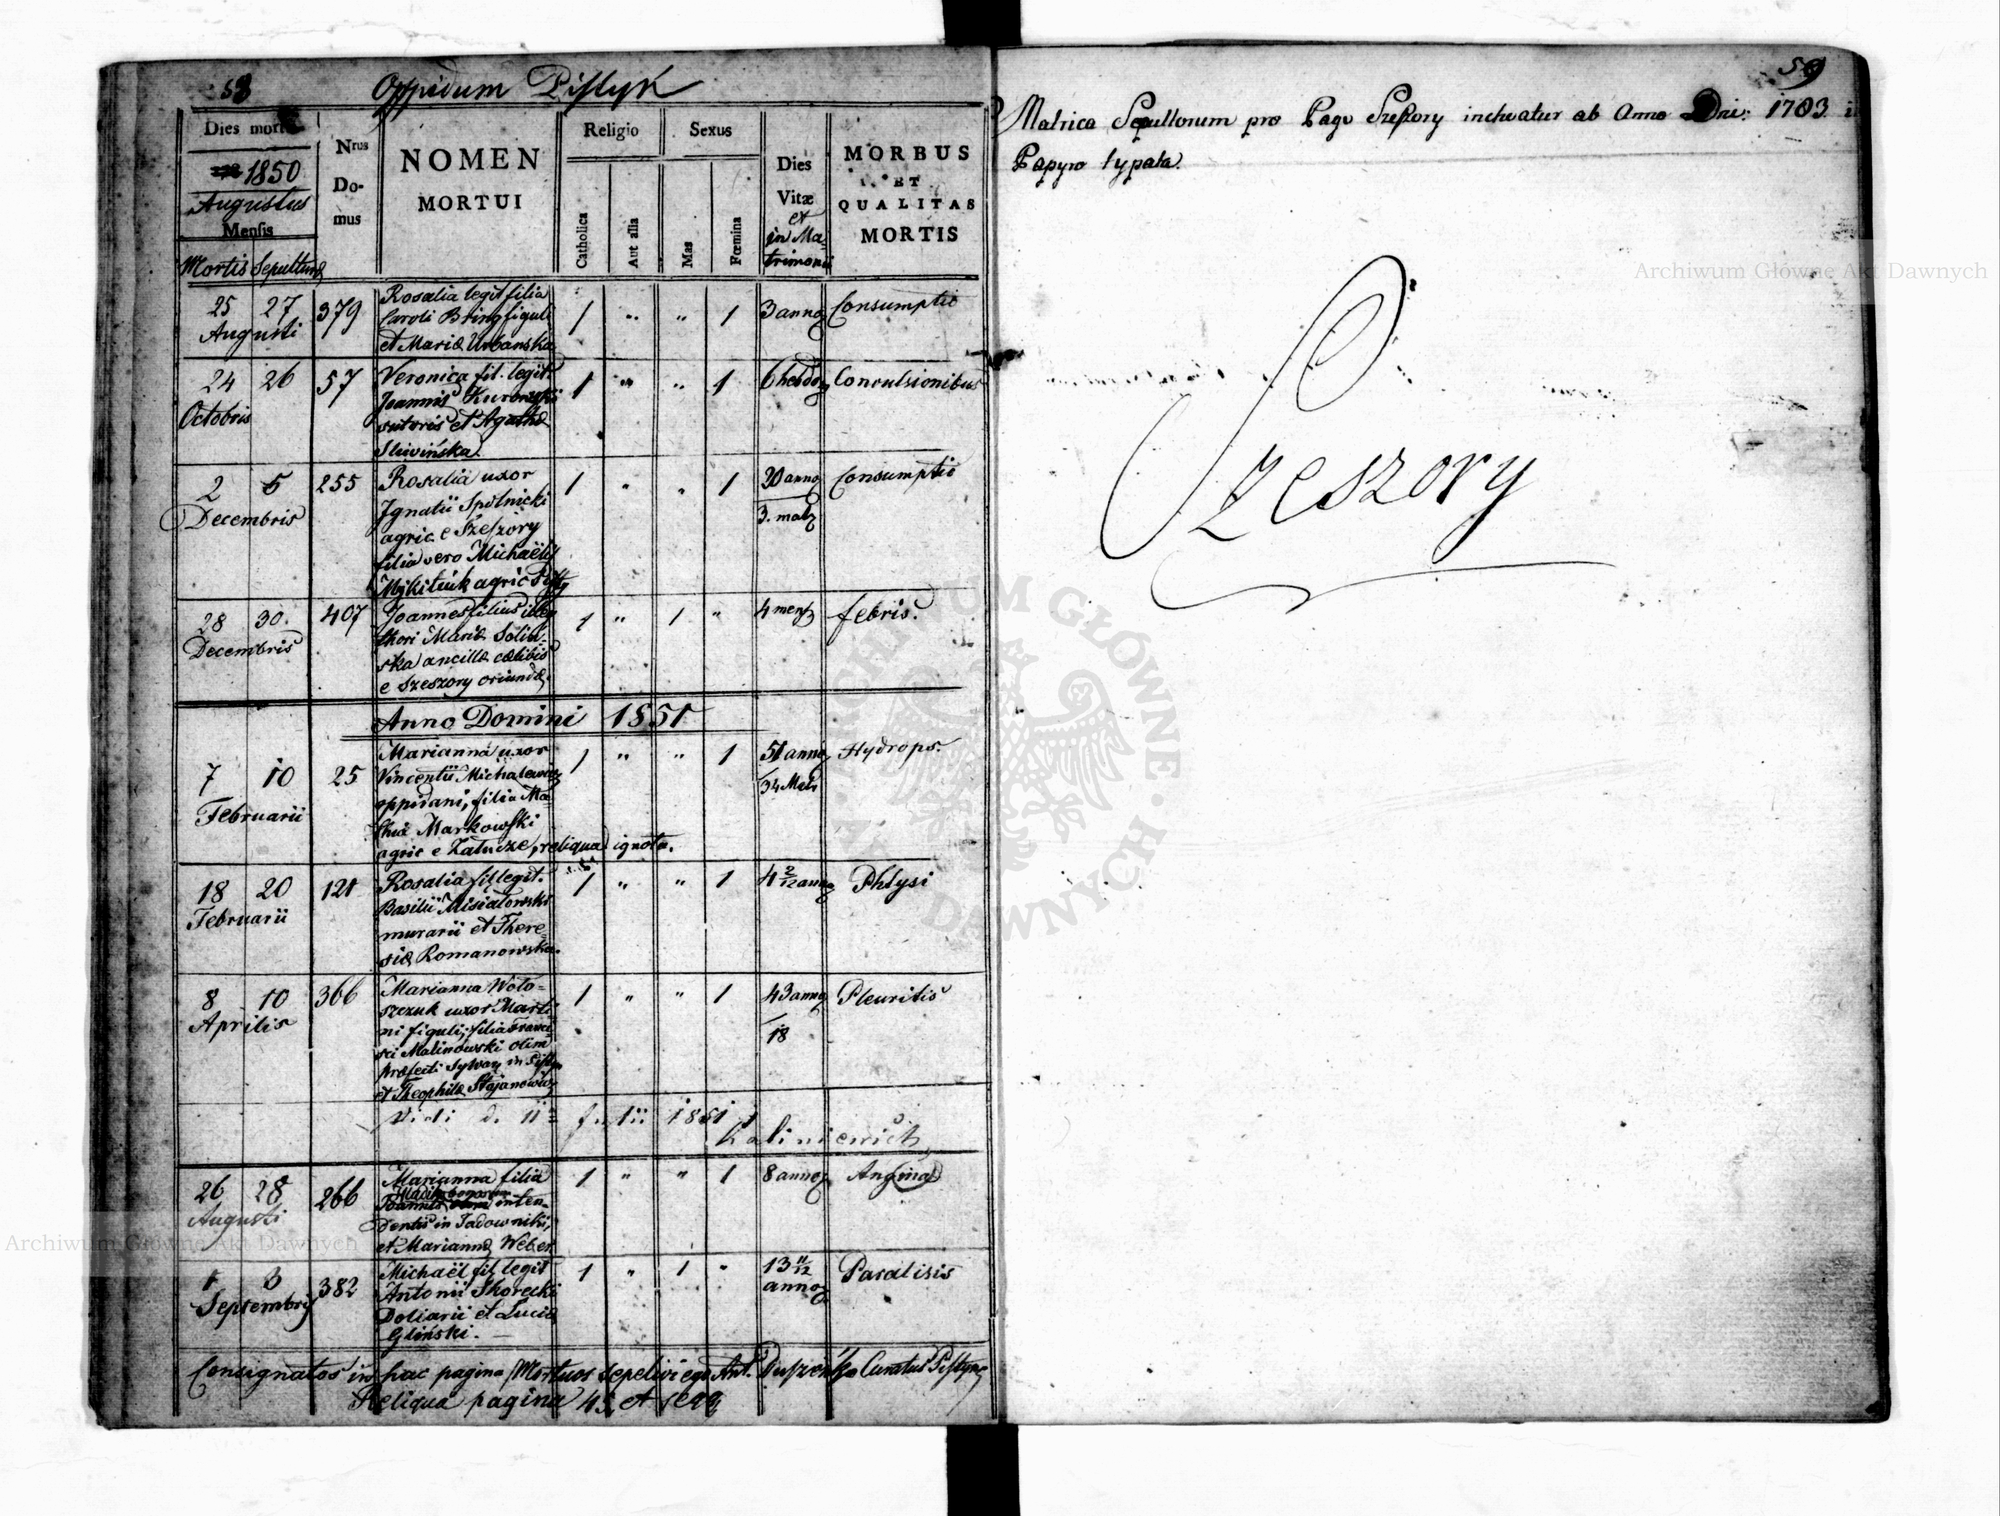 58
Oppidum Pistyn
Dies mortis
1850
Augustus
Mensis
Mortis Sepulturæ
Nrus Domus
NOMEN
MORTUI
Religio
Catholica
Aut alia
Sexus
Mas
Fœmina
Dies
Vitæ
et
in Ma-
trimonii
MORBUS
ET
QUALITAS
MORTIS
25 27 379 Rosalia legit filia 1 " " 1 3 anno Consumptio
Augusti Caroli Bring figuli
et Mariæ Urbanska
24 26 57 Veronica fil. legit. 1 " " 1 6 hebdo Convulsionibus
Octobris Joannis
sutoris et Agathæ
Sliwińska.
2 5 255 Rosalia uxor 1 " " 1 30 anno Consumptio
Decembris Ignatii Spólnicki 3. mat
agric e Szeszory
filia vero Michaëlis
Mykitiuk agric Pisty
28 30. 407 Joannes filius illeg 1 " 1 " 4 mens febris.
Decembris thori Mariæ Solin-
ska ancillæ cælibis
e Szeszory oriundæ.
Anno Domini 1851
7 10 25 Marianna uxor 1 " " 1 51 anno Hydrops.
Februarii Vincentii Michalewicz 34 Matr
oppidani, filia Ma-
thiæ Markowski
agric e Załucze, reliqua ignota.
18 20 121 Rosalia fil legit. 1 " " 1 4 2/12 anno Phtysi
Februarii Basilii Misiatowski
murarii et There-
siæ Romanowska.
8 10 366 Marianna Woło- 1 " " 1 43 anno Pleuritis
Aprilis szczuk uxor Marti- 18
ni figuli, filia Franci-
sci Malinowski olim
præfecti sylvar in Pistyn
et Theophilæ Stojanowicz
Vidi d. 11 Julii 1851
Kaliniewicz
26 28 266 Marianna filia 1 " " 1 8 anno Angina
Augusti Joannis inten-
dentis in Jadowniki,
et Mariannæ Weber
1 3 382 Michaël fil legit 1 " 1 " 13 11/12 anno Paralisis
Septembris Antonii Skorecki
Doliarii et Luciæ
Gliński.
Consignatos in hac pagina Mortuos sepelivi ego Ant. Curatus Pistyn
Reliqua pagina 45 et seqq
59
Matrica Sepultorum pro Pago Szeszory incheatur ab Anno Dni: 1783 i
Papyro typata.
Szeszory
Archiwum Główne Akt Dawnych
Archiwum Główne Akt Dawnych
ARCHIWUM GŁÓWNE AKT DAWNYCH